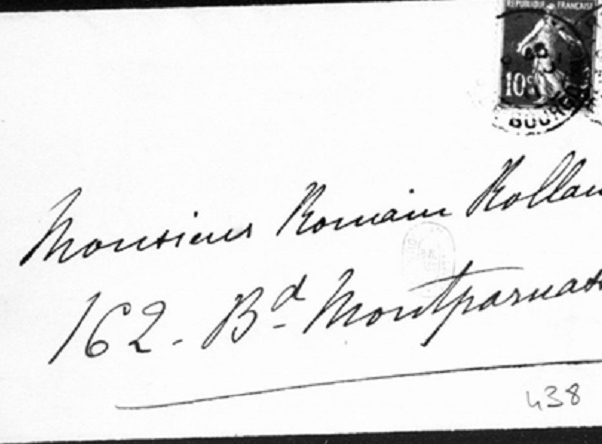 RÉPUBLIQUE FRANÇAISE
10c
BOURG
Monsieur Romain Rollan
162 - Bd Montparnas
438